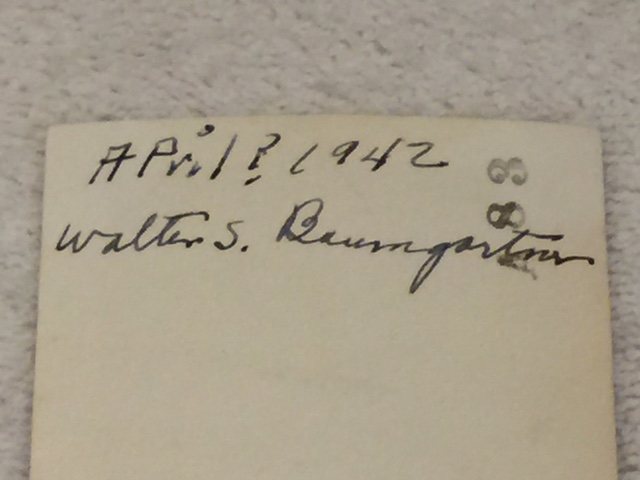 April? 1942
Walter S. Baumgartner